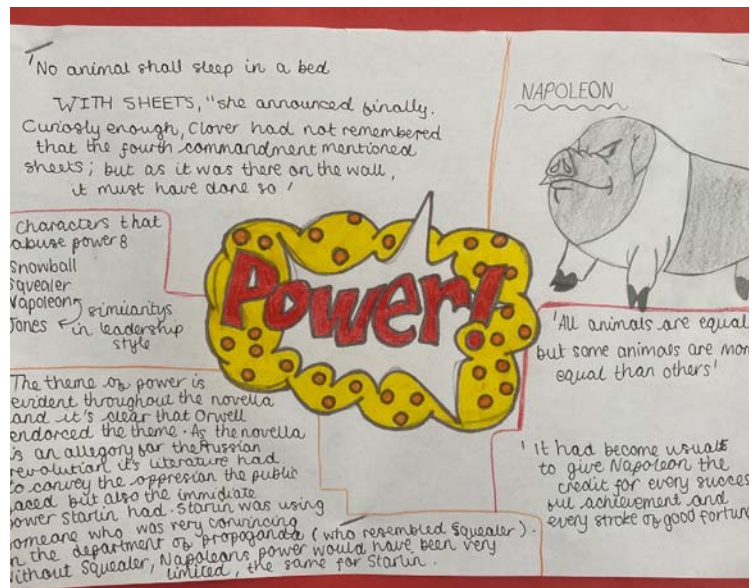 'No animal shall sleep in a bed
WITH SHEETS, "she announced finally.
Curiosly enough, Clover had not remembered
that the fourth commandment mentioned
sheets; but as it was there on the wall,
it must have done so'
NAPOLEON
Characters that
abuse power:
Snowball
Squealer
Napoleon
Jones
similaritys
in leadership
style
Power!
'All animals are equal
but some animals are more
equal than others'
The theme of power is
evident throughout the novella
and it's clear that Orwell
endorced the theme. As the novella
is an allegory for the Russian
revolution it's literature had
to convey the oppresian the public
faced but also the immidiate
power Starlin had. Starlin was using
someone who was very convincing
in the department of propaganda (who resembled Squealer).
Without Squealer, Napoleans power would have been very
limited, the same for Starlin.
'It had become usual
to give Napoleon the
credit for every success
ful achievement and
every stroke of good fortune